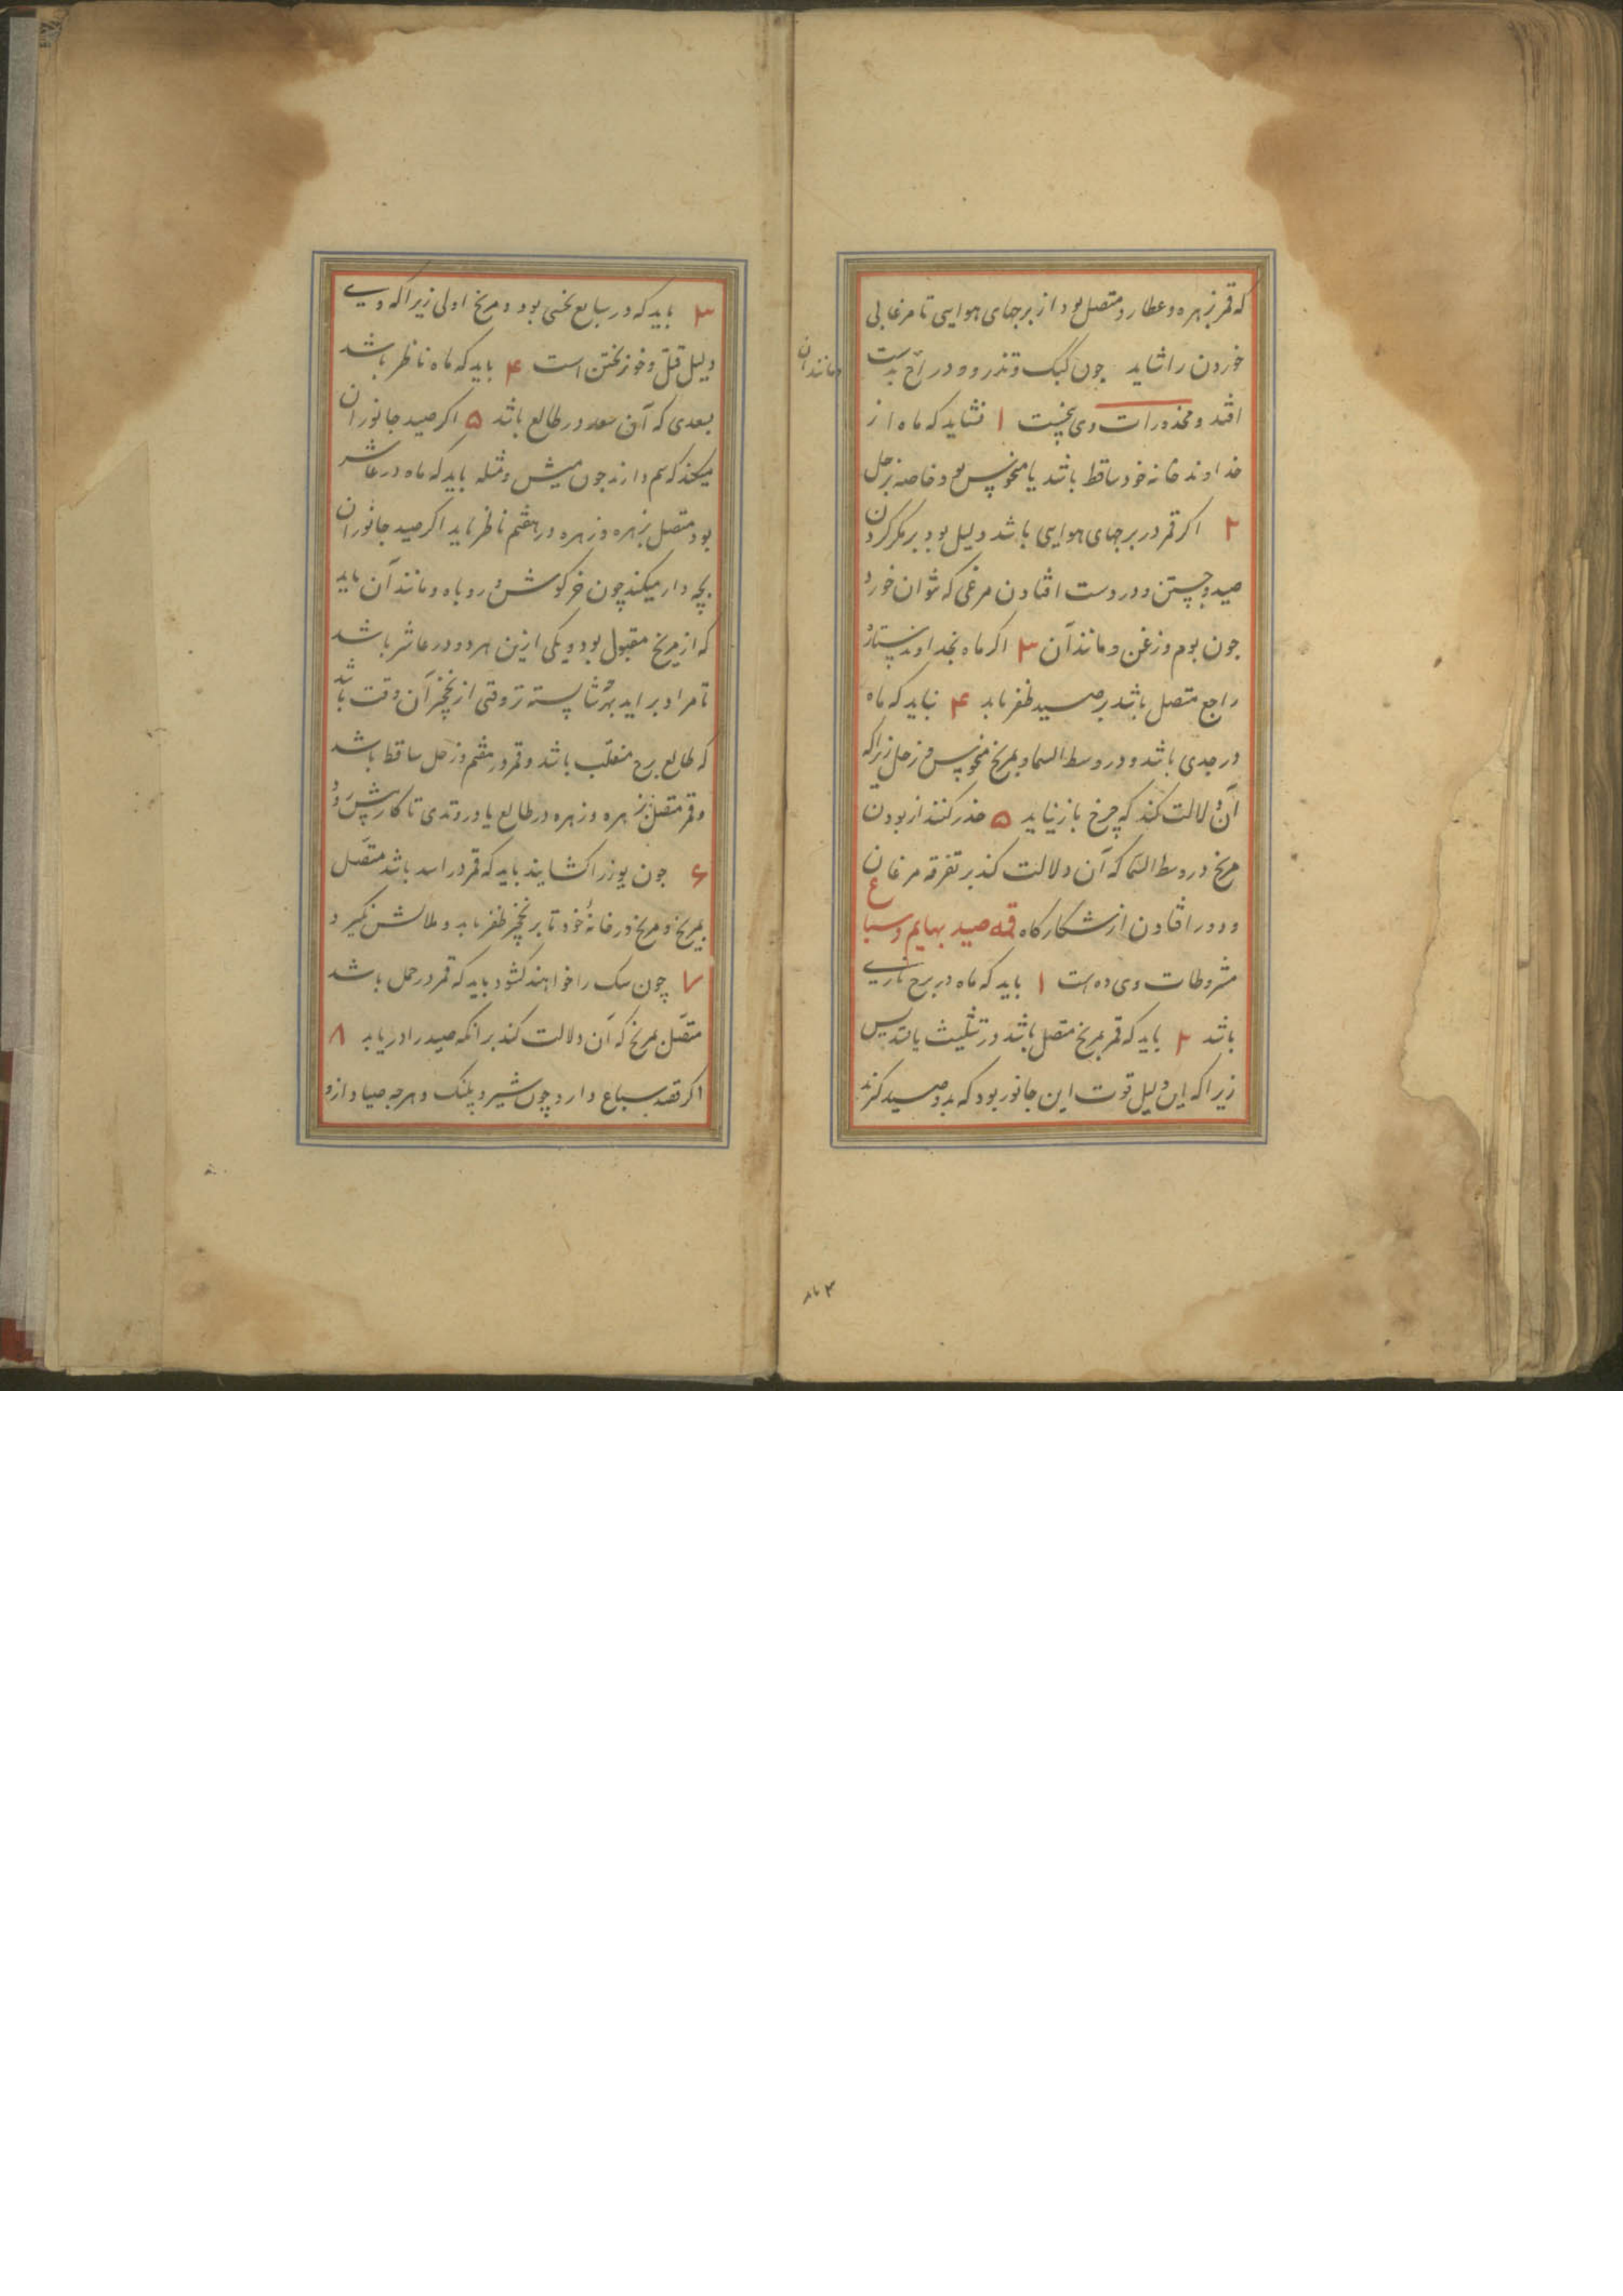 که قمر بزهره و عطارد متصل بود از برجهای هوایی تا مرغابی
خوردن را شاید چون کبک و تذرو و دراج بدست
مانند آن
افتد و محذورات وی پنجست ۱ نشاید که ماه از
خداوند خانه خود ساقط باشد یا منحوس بود خاصه بزحل
۲ اکر قمر در برجهای هوایی باشد دلیل بود بر مکر کردن
صید و جستن و در دست افتادن مرغی که نتوان خورد
چون بوم و زغن و مانند آن ۳ اکر ماه بخداوند ستاره
راجع متصل باشد بر صید ظفر یابد ۴ نباید که ماه
در جدی باشد و در وسط السما و بمریخ منحوس و زحل زیراکه
آن دلالت کند که چرخ باز نیاید ۵ حذر کنند از بودن
مریخ در وسط السما که آن دلالت کند بر تفرقه مرغان
و دور افتادن از شکارکاه قه صید بهایم و سباع
مشروطات وی ده است ۱ باید که ماه در برج ناری
باشد ۲ باید که قمر بمریخ متصل باشد در تثلیث یا تسدیس
زیرا که این دلیل قوت این جانور بود که بدو صید کنند
۳ باید که در سابع نحسی بود و مریخ اولی زیرا که وی
دلیل قتل و خون ریختن است ۴ باید که ماه ناظر باشد
بسعدی که آن سعد در طالع باشد ۵ اکر صید جانوران
میکند که سم دارند چون میش و مثله باید که ماه در عاشر
بود متصل بزهره و زهره در هفتم ناظر باید اکر صید جانوران
بچه دار میکند چون خرکوش و روباه و مانند آن باید
که از مریخ مقبول بود و یکی ازین هر دو در عاشر باشد
تا مراد بر اید و شایسته تر وقتی از نخچیر آن وقت باشد
که طالع برج منقلب باشد و قمر در هفتم و زحل ساقط باشد
و قمر متصل بزهره و زهره در طالع یا در وتدی تا کارش رود
۶ چون یوز را کشایند باید که قمر در اسد باشد متصل
بمریخ و مریخ در خانه خود تا بر نخچیر ظفر یابد و ملالش نکیرد
۷ چون سک را خواهند کشود باید که قمر در حمل باشد
متصل بمریخ که آن دلالت کند بر انکه صید را دریابد ۸
اکر قصد سباع دارد چون شیر و پلنک و هرچه صیاد ازو